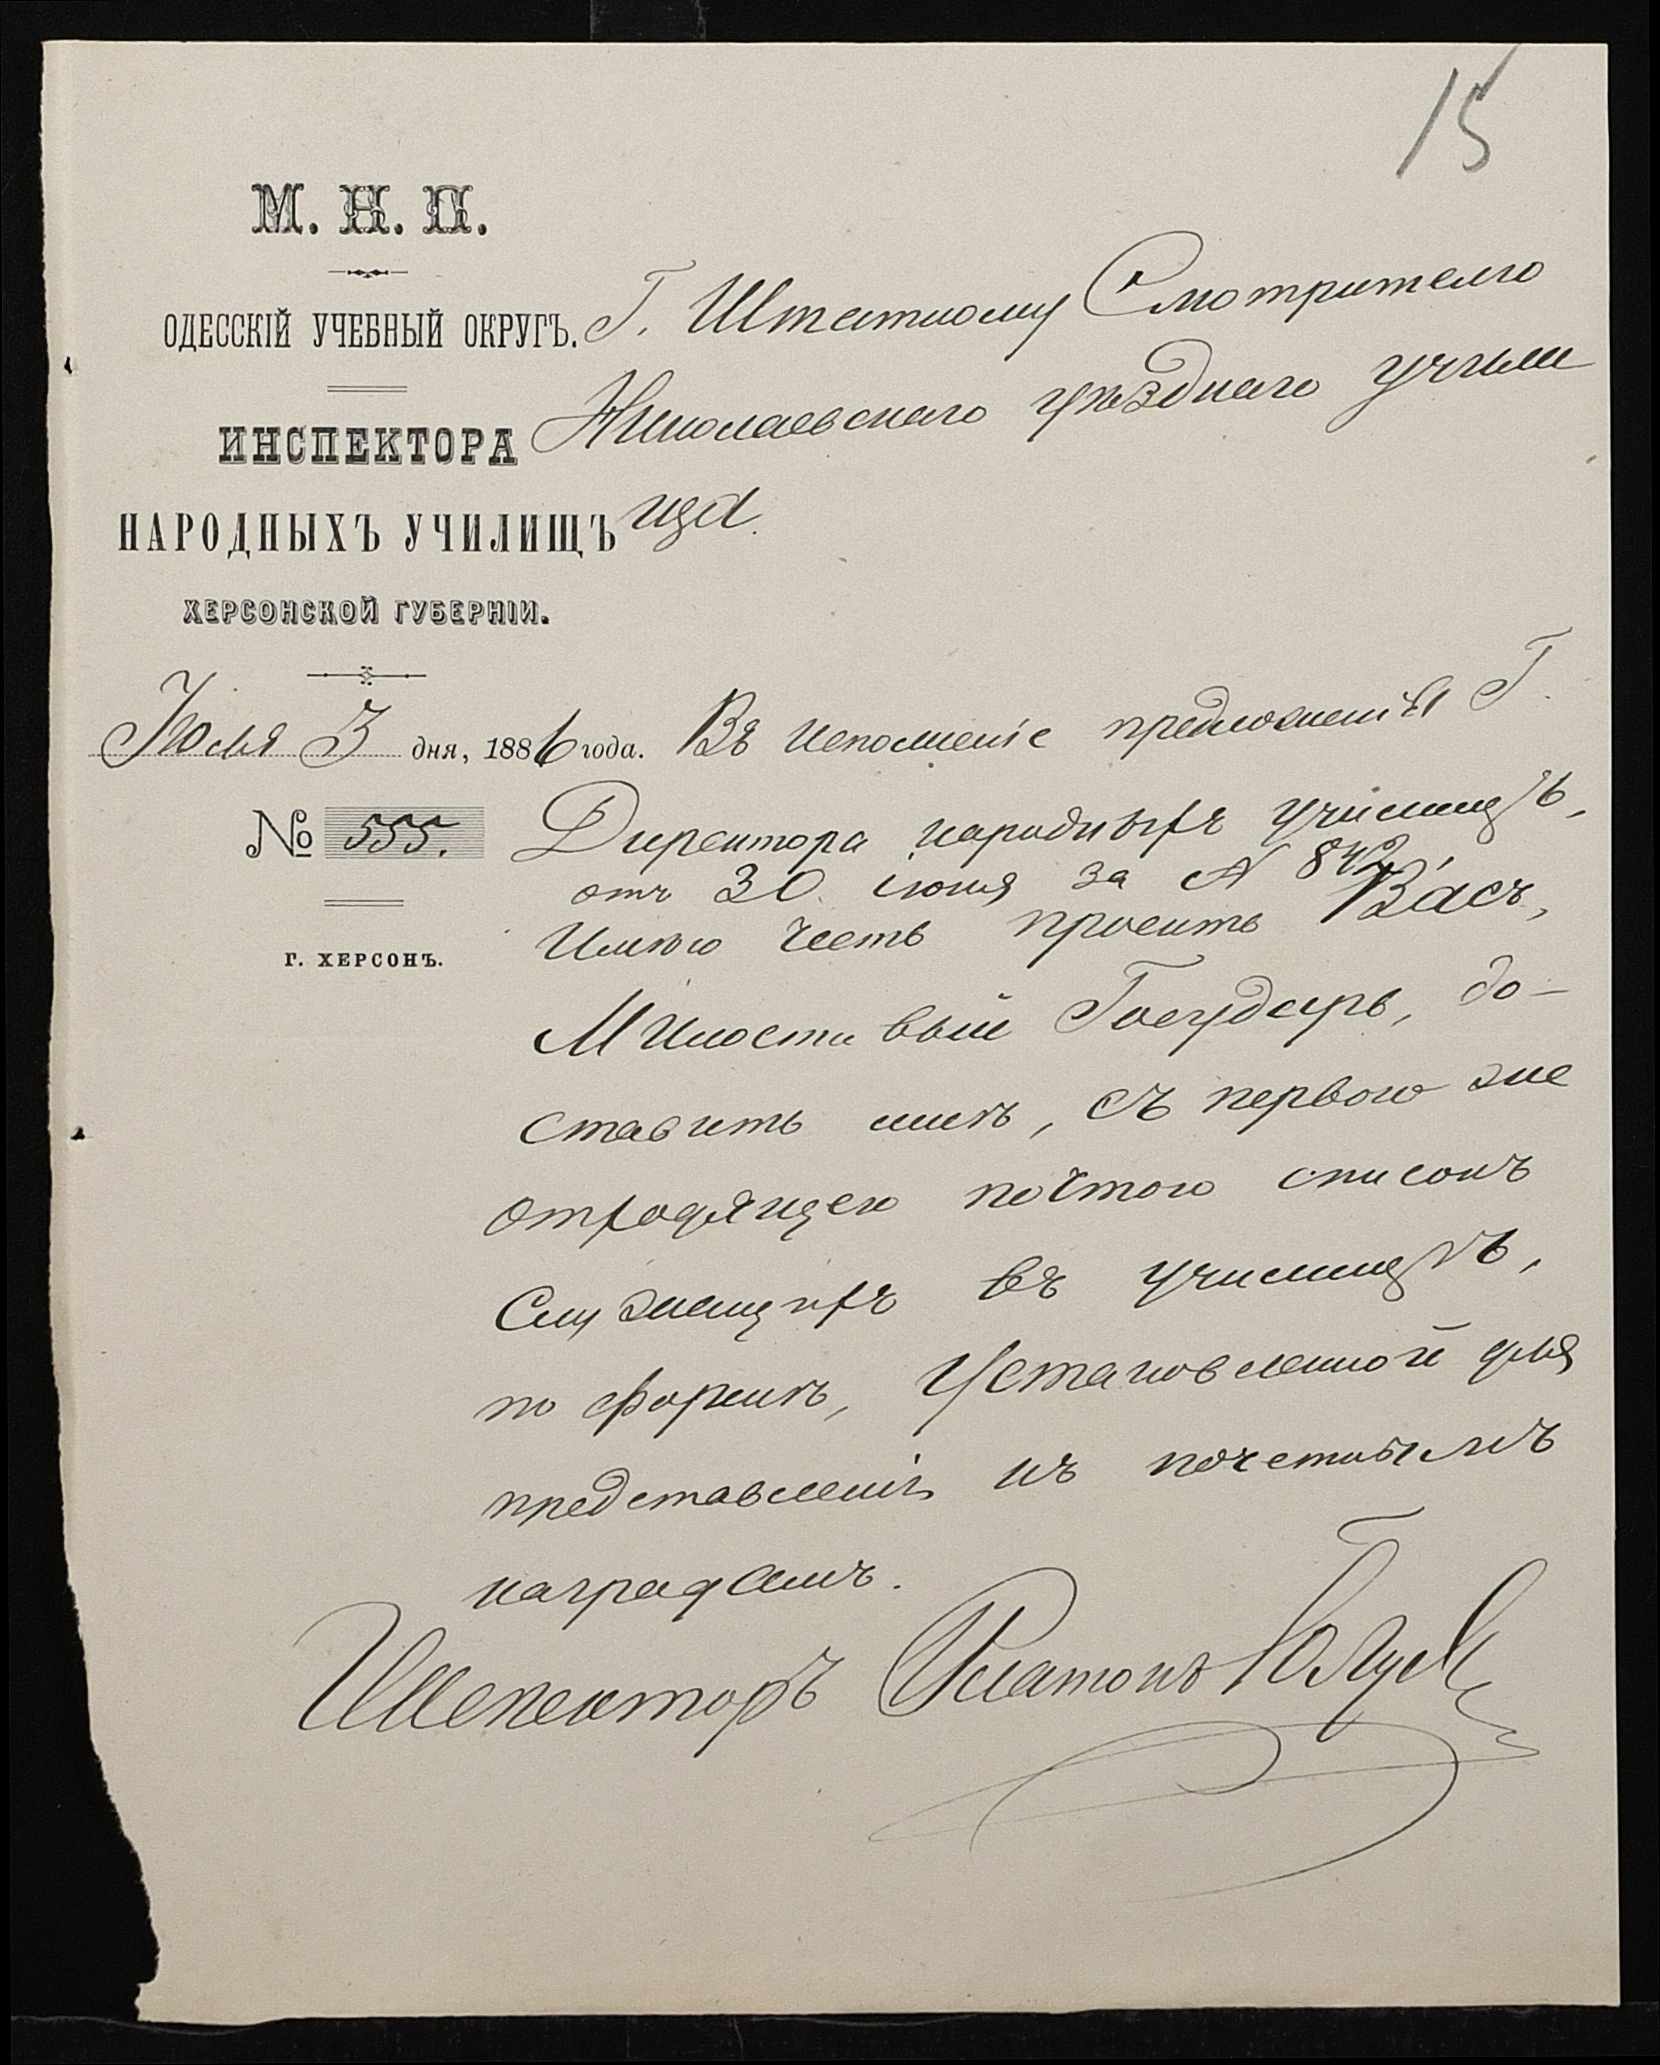 15
М. Н. П.
ОДЕССКІЙ УЧЕБНЫЙ ОКРУГЪ.
ИНСПЕКТОРА
НАРОДНЫХЪ УЧИЛИЩЪ
ХЕРСОНСКОЙ ГУБЕРНІИ.
Іюля 3 дня, 1886 года.
№ 555.
Г. ХЕРСОНЪ.
Г. Штатному Смотрителю
Николаевскаго уѣзднаго учили
ща.
Въ исполненіе предложенія Г.
Директора народныхъ училищъ,
отъ 30 іюня за № 842,
Имѣю честь просить Васъ,
Милостивый Государь, до-
ставить мнѣ, съ первою же
отходящею почтою списокъ
служащихъ въ училищѣ,
по формѣ, установленной для
представленія къ почетнымъ
наградамъ.
Инспекторъ Платонъ